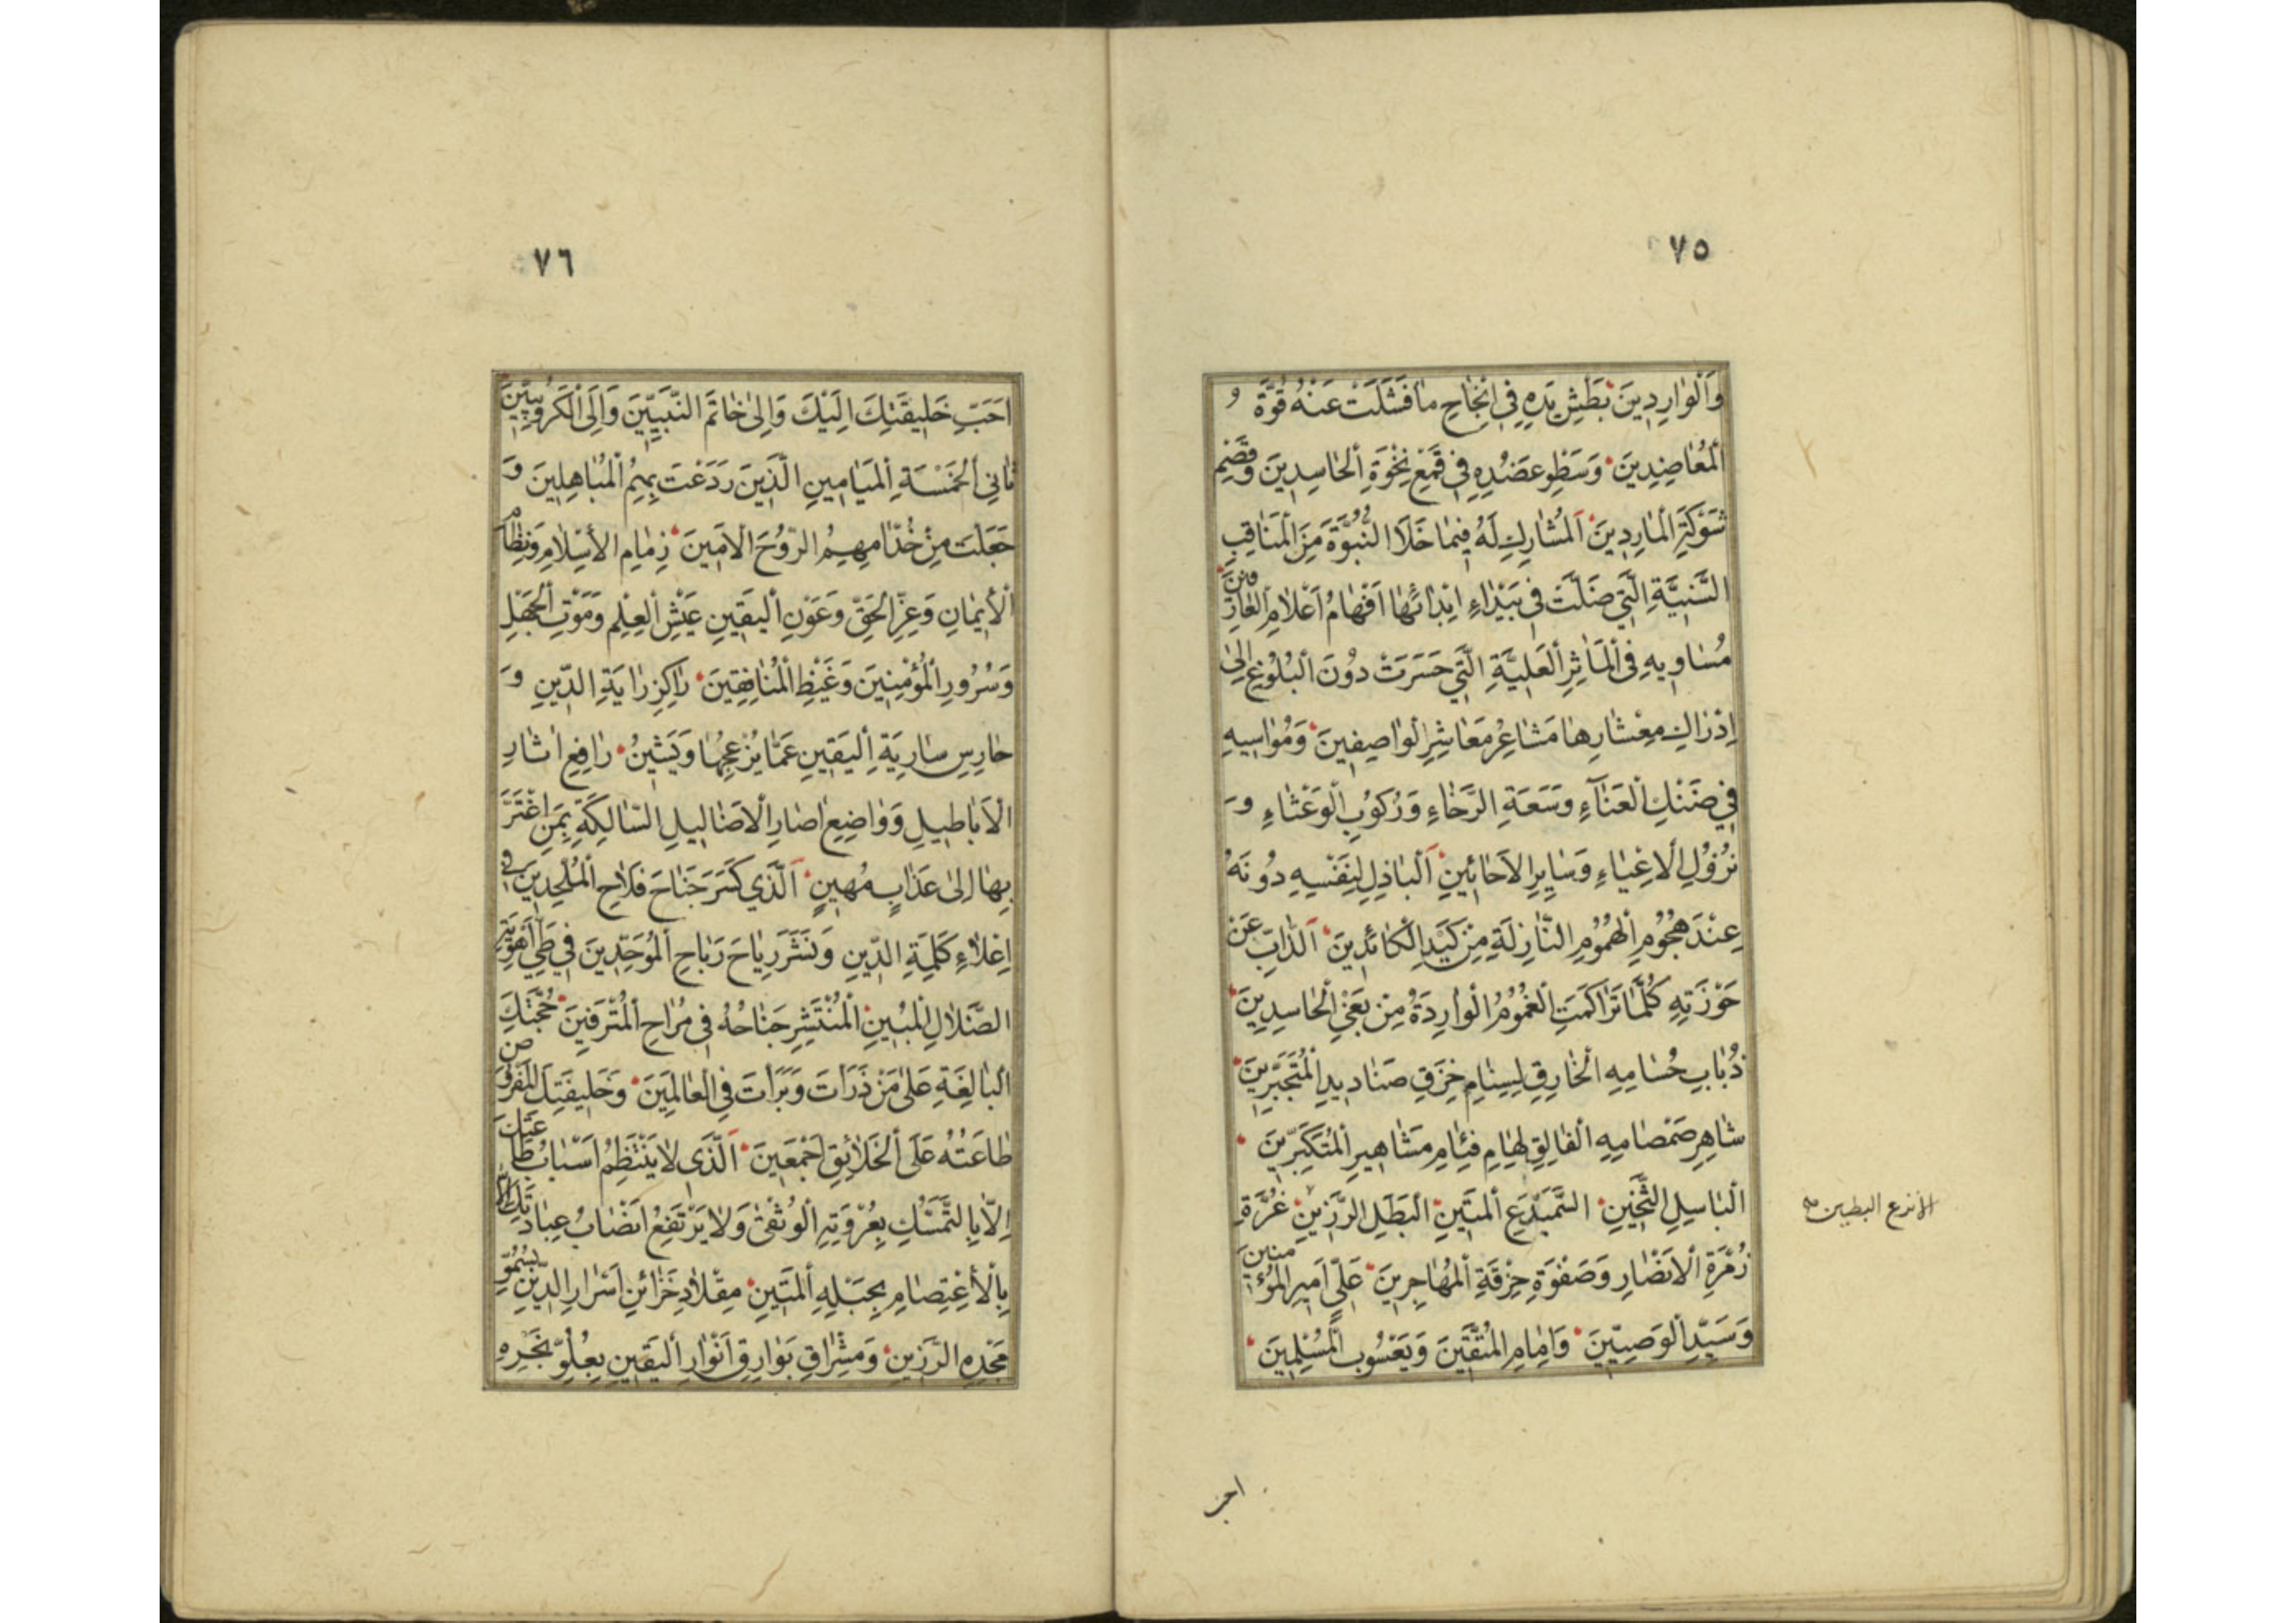 ٧٥
وَالْوٰارِدِينَ بَطْشِ يَدِهِ فِي اِنْجٰاحِ مٰا فَشَلَتْ عَنْهُ قُوَّةُ
الْمُعٰاضِدِينَ وَسَطْوِ عَضُدِهِ فِي قَمْعِ نِخْوَةِ الْحٰاسِدِينَ وَقَصْمِ
شَوْكَةِ الْمٰارِدِينَ اَلْمُشٰارِكِ لَهُ فِيمٰا خَلَا النُّبُوَّةَ مِنَ الْمَنٰاقِبِ
السَّنِيَّةِ الَّتِي ضَلَّتْ فِي بَيْدٰاءِ اَفْهٰامُ اَعْلٰامِ الْعٰارِفِينَ
مُسٰاوِيهِ فِي الْمَآثِرِ الْعَلِيَّةِ الَّتِي حَسَرَتْ دُونَ الْبُلُوغِ اِلىٰ
اِدْرٰاكِ مِعْشٰارِهٰا مَشٰاعِرُ مَعٰاشِرِ الْوٰاصِفِينَ وَمُوٰاسِيهِ
فِي ضَنْكِ الْعَنٰاءِ وَسَعَةِ الرَّخٰاءِ وَرُكُوبِ الْوَعْثٰاءِ وَ
نُزُولِ الْاَعْيٰاءِ وَسٰايِرِ الْاَحٰائِينِ اَلْبٰاذِلِ لِنَفْسِهِ دُونَهُ
عِنْدَ هُجُومِ الْهُمُومِ النّٰازِلَةِ مِنْ كَيْدِ الْكٰائِدِينَ اَلذّٰابِّ عَنْ
حَوْزَتِهِ كُلَّمٰا تَرٰاكَمَتِ الْغُمُومُ الْوٰارِدَةُ مِنْ بَغْيِ الْحٰاسِدِينَ
ذُبٰابِ حُسٰامِهِ الْخٰارِقِ لِسِنٰامِ خِرَقِ صَنٰادِيدِ الْمُتَجَبِّرِينَ
شٰاهِرِ صَمْصٰامِهِ الْفٰالِقِ لِهٰامِ فِئٰامِ مَشٰاهِيرِ الْمُتَكَبِّرِينَ
الْبٰاسِلِ الثَّخِينِ السَّمَيْدَعِ الْمَتِينِ الْبَطَلِ الرَّزِينِ غُرَّةِ
الأنزع البطين
زُمْرَةِ الْاَنْصٰارِ وَصَفْوَةِ حِزْقَةِ الْمُهٰاجِرِينَ عَلِيٍّ اَمِيرِ الْمُؤْمِنِينَ
وَسَيِّدِ الْوَصِيِّينَ وَاِمٰامِ الْمُتَّقِينَ وَيَعْسُوبِ الْمُسْلِمِينَ
٧٦
اَحَبِّ خَلِيقَتِكَ اِلَيْكَ وَاِلىٰ خٰاتَمِ النَّبِيِّينَ وَاِلَى الْكَرُوبِيِّينَ
ثٰانِي الْخَمْسَةِ الْمَيٰامِينِ الَّذِينَ رَدَعْتَ بِهِمُ الْمُبٰاهِلِينَ وَ
جَعَلْتَ مِنْ خُدّٰامِهِمُ الرُّوحَ الْاَمِينَ زِمٰامِ الْاِسْلٰامِ وَنِظٰامِ
الْاِيمٰانِ وَعِزِّ الْحَقِّ وَعَوْنِ الْيَقِينِ عَيْشِ الْعِلْمِ وَمَوْتِ الْجَهْلِ
وَسُرُورِ الْمُؤْمِنِينَ وَغَيْظِ الْمُنٰافِقِينَ رٰاكِزِ رٰايَةِ الدِّينِ وَ
حٰارِسِ سٰارِيَةِ الْيَقِينِ عَمّٰا يُزْعِجُهٰا وَيَشِينُ رٰافِعِ اٰثٰارِ
الْاَبٰاطِيلِ وَوٰاضِعِ اٰصٰارِ الْاَضٰالِيلِ السّٰالِكَةِ بِمَنِ اغْتَرَّ
بِهٰا اِلىٰ عَذٰابٍ مُهِينٍ اَلَّذِي كَسَرَ جَنٰاحَ فَلٰاحِ الْمُلْحِدِينَ فِي
اِعْلٰاءِ كَلِمَةِ الدِّينِ وَنَشَرَ رِيٰاحَ رَبٰاحِ الْمُوَحِّدِينَ فِي طَيِّ اَهْوِيَةِ
الضَّلٰالِ الْمُبِينِ الْمُنْتَشِرِ جَنٰاحُهُ فِي مُرٰاحِ الْمُتْرَفِينَ حُجَّتِكَ
الْبٰالِغَةِ عَلىٰ مَنْ ذَرَأْتَ وَبَرَأْتَ فِي الْعٰالَمِينَ وَخَلِيفَتِكَ الْمَفْرُوضِ
طٰاعَتُهُ عَلَى الْخَلٰائِقِ اَجْمَعِينَ اَلَّذِي لٰا يَنْتَظِمُ اَسْبٰابُ طٰاعَتِكَ
اِلّٰا بِالتَّمَسُّكِ بِعُرْوَتِهِ الْوُثْقىٰ وَلٰا يَرْتَفِعُ اَنْصٰابُ عِبٰادَتِكَ اِلّٰا
بِالْاِعْتِصٰامِ بِحَبْلِهِ الْمَتِينِ مِقْلٰادِ خَزٰائِنِ اَسْرٰارِ الدِّينِ بِسُمُوِّ
مَجْدِهِ الرَّزِينِ وَمِشْرٰاقِ بَوٰارِقِ اَنْوٰارِ الْيَقِينِ بِعُلُوِّ نَجْرِهِ